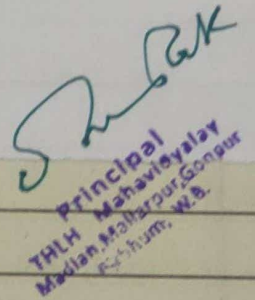 Principal
THLH Mahavidyalay
Madian, Mallarpur, Gonpur
W.B.